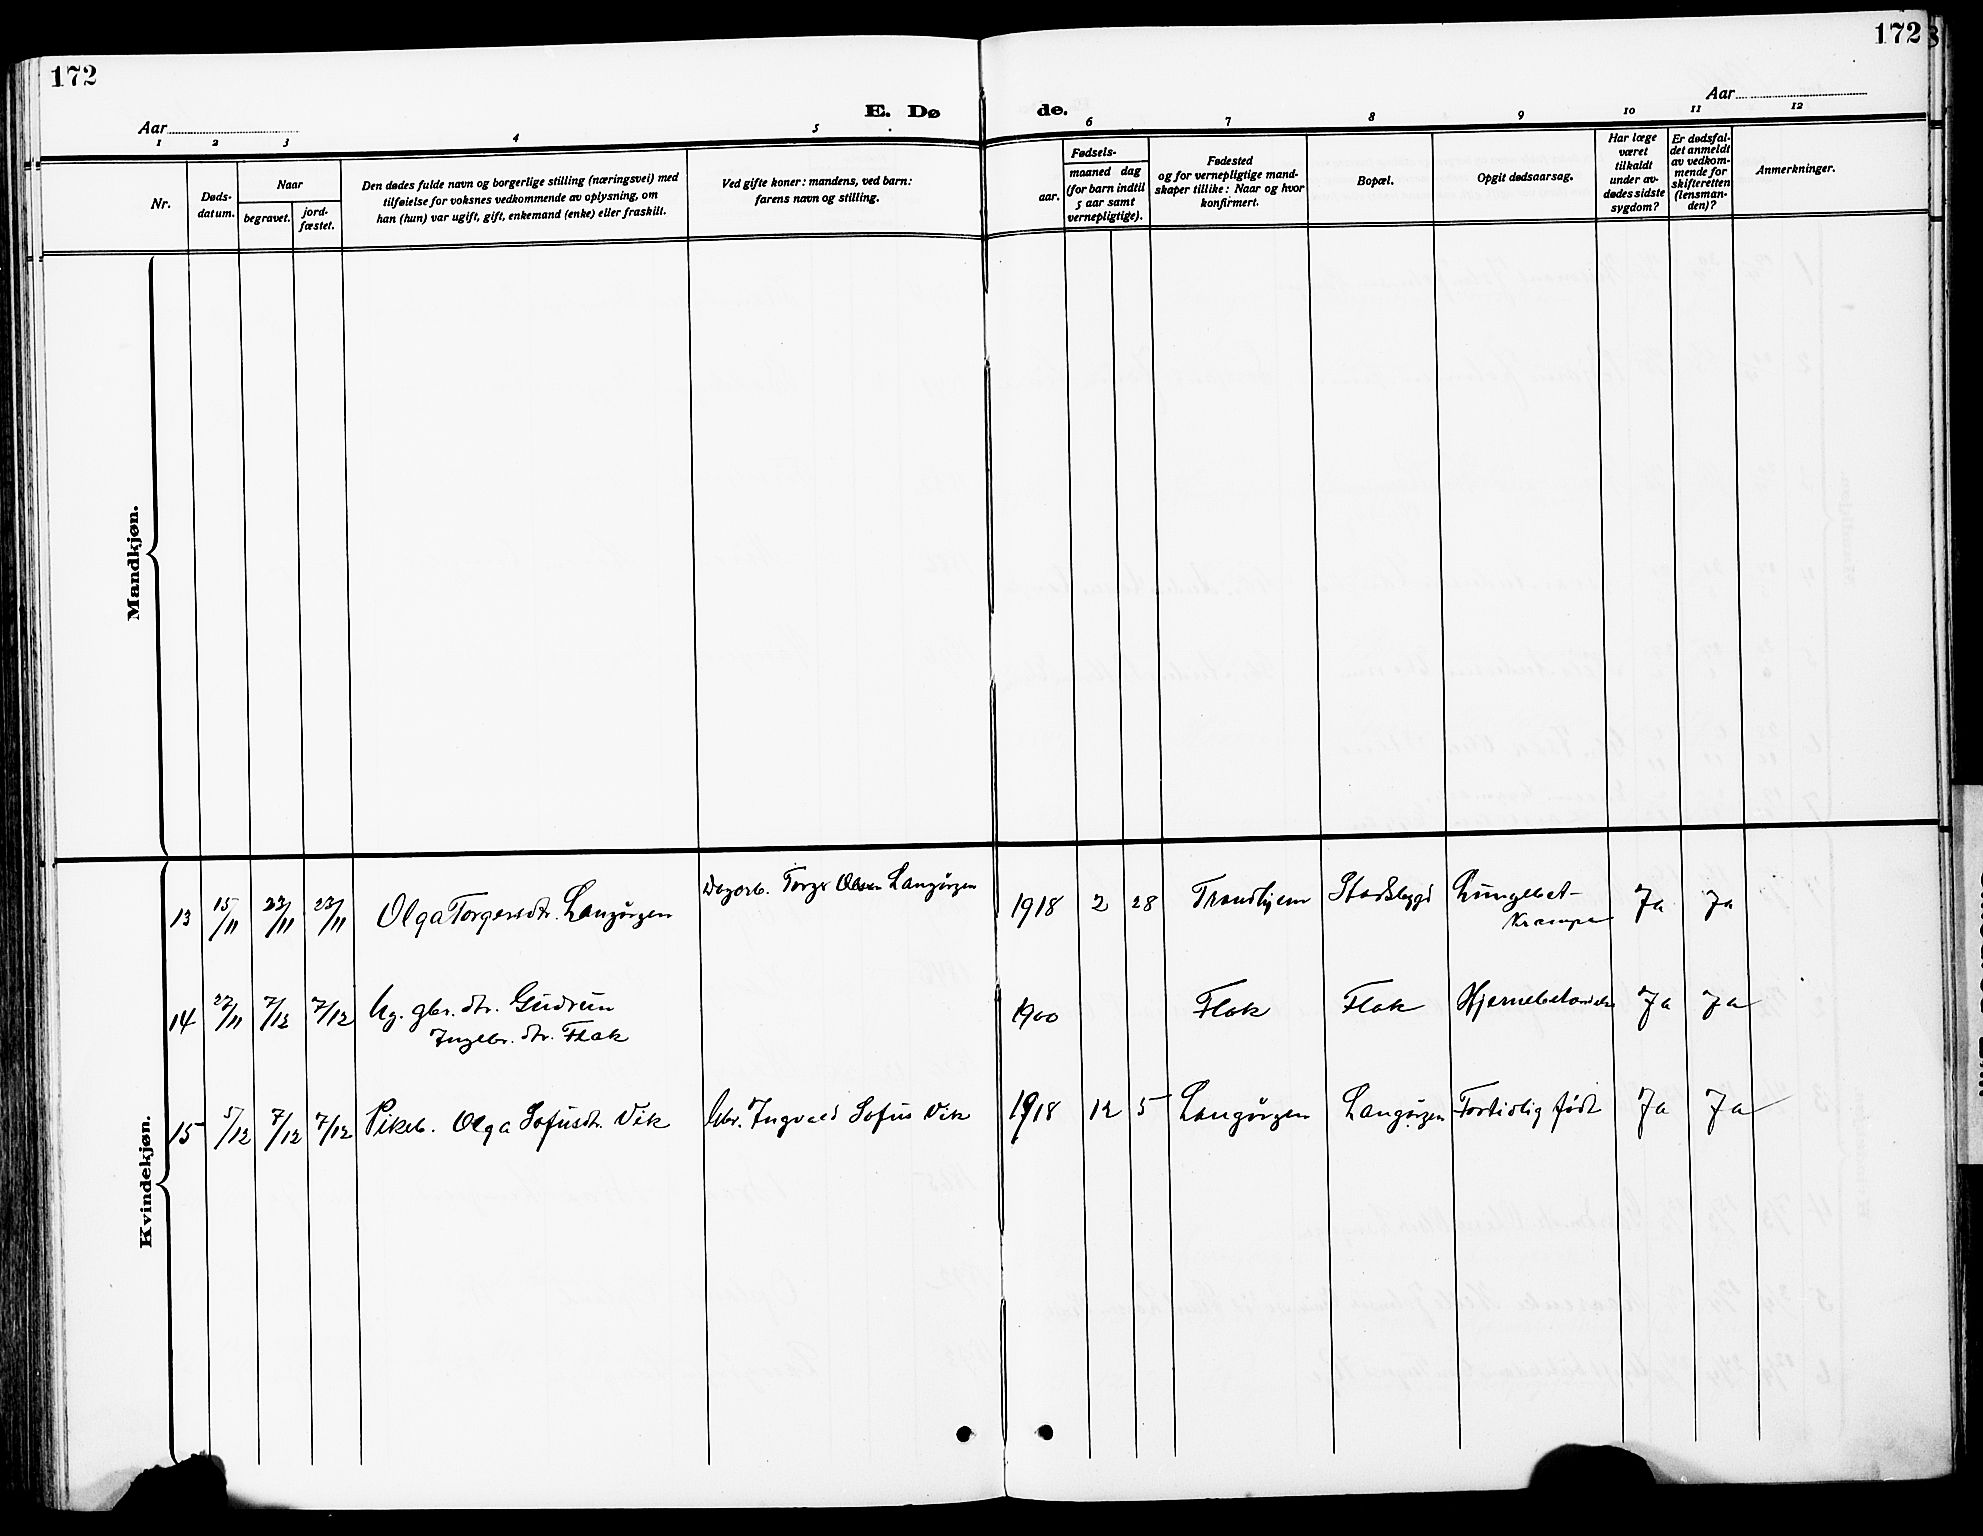 172
172
E. Døde.
Aar
Aar
1 2 3 4 5 6 7 8 9 10 11 12
Nr.
Døds-
datum.
Naar
begravet.
jord-
fæstet.
Den dødes fulde navn og borgerlige stilling (næringsvei) med
tilføielse for voksnes vedkommende av oplysning, om
han (hun) var ugift, gift, enkemand (enke) eller fraskilt.
Ved gifte koner: mandens, ved barn:
farens navn og stilling.
Fødsels-
aar.
maaned dag
(for barn indtil
5 aar samt
vernepligtige).
Fødested
og for vernepligtige mand-
skaper tillike: Naar og hvor
konfirmert.
Bopæl.
Opgit dødsaarsag.
Har læge
været
tilkaldt
under av-
dødes sidste
sygdom?
Er dødsfal-
det anmeldt
av vedkom-
mende for
skifteretten
(lensman-
den)?
Anmerkninger.
Mandkjøn.
Kvindekjøn.
13 15/11 23/11 23/11 Olga Torgersdtr. Langørgen Torger Olsen Langørgen 1918 2 28 Trondhjem Stadsbygd Lungebet-
Krampe Ja Ja
14 27/11 7/12 7/12 Ug. gbr. dtr. Gudrun
Ingebr. dtr. Flak 1900 Flak Flak Ja Ja
15 5/12 7/12 7/12 Pikeb. Olga Sofusdtr. Vik Gbr. Ingvald Sofus Vik 1918 12 5 Langørgen Langørgen Fortidlig født Ja Ja